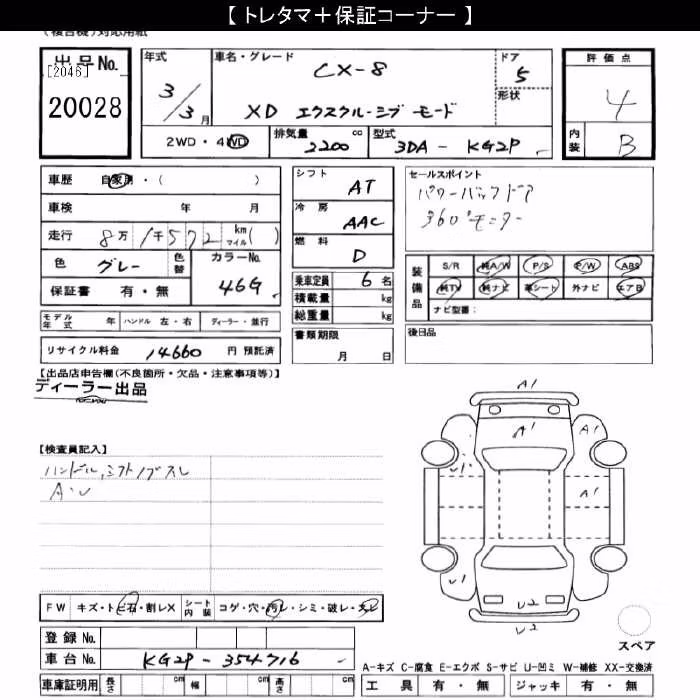 【 トレタマ＋保証コーナー 】
(複合機)対応用紙
出品No.
[2046]
20028
年式
3/3月
車名・グレード
CX-8
XD エクスクルーシブ モード
ドア
5
形状
2WD・4WD
排気量
2200 cc
型式
3DA - KG2P
評価点
4
内装
B
車歴 自家用・( )
車検 年 月
走行 8万1千572 km マイル( )
色 グレー 色替
カラーNo.
46G
保証書 有・無
モデル年式 年 ハンドル 左・右 ディーラー・並行
リサイクル料金 14660 円 預託済
シフト
AT
冷房
AAC
燃料
D
乗車定員 6 名
積載量 kg
総重量 kg
書類期限
月 日
セールスポイント
パワーバックドア
360°モニター
装備品
S/R 純A/W P/S P/W ABS
純TV 純ナビ 革シート 外ナビ エアB
ナビ型番：
後日品
【出品店申告欄(不良箇所・欠品・注意事項等)】
ディーラー出品
【検査員記入】
ハンドル,シフトノブスレ
A・U
FW キズ・トビ石・割レX シート内装 コゲ・穴・汚レ・シミ・破レ・スレ
登録 No.
車台 No. KG2P - 354716
車庫証明用 長さ cm 幅 cm 高さ cm
A1
A1
A1
A1
U1
U1
U2
U2
スペア
A-キズ C-腐食 E-エクボ S-サビ U-凹ミ W-補修 XX-交換済
工具 有・無 ジャッキ 有・無